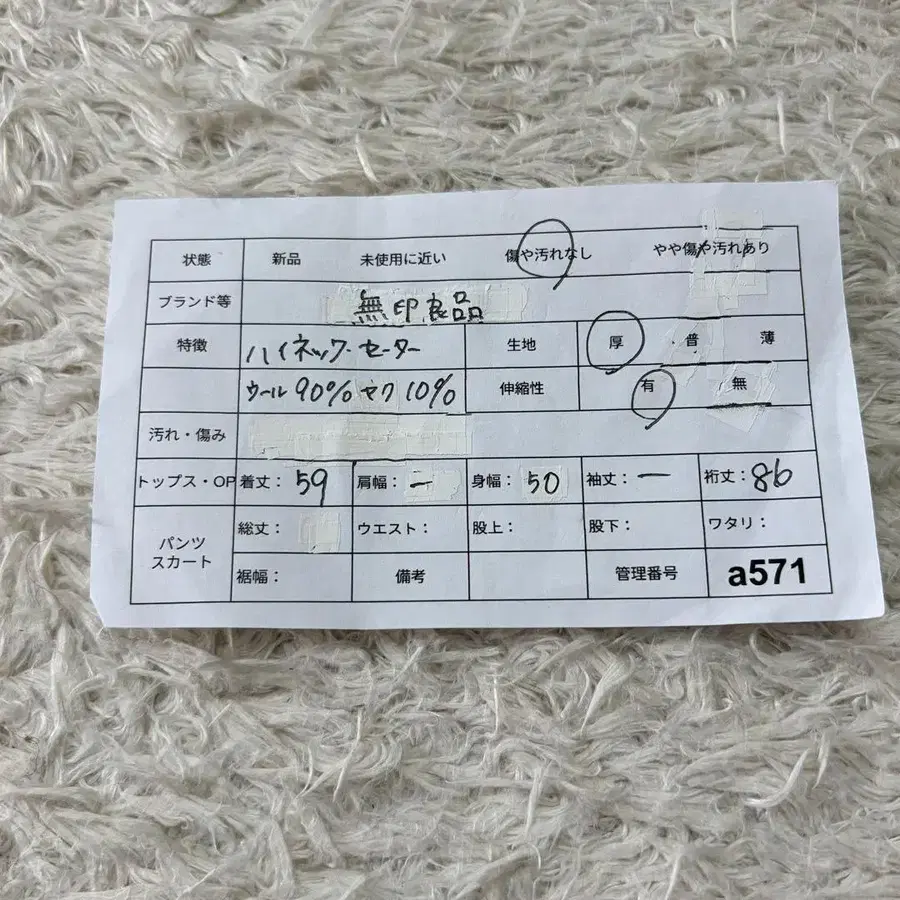 状態 新品 未使用に近い 傷や汚れなし やや傷や汚れあり
ブランド等 無印良品
特徴 ハイネック・セーター 生地 厚 普 薄
ウール90% ヤク10% 伸縮性 有 無
汚れ・傷み
トップス・OP 着丈:59 肩幅:ー 身幅:50 袖丈:ー 裄丈:86
パンツ スカート 総丈: ウエスト: 股上: 股下: ワタリ:
裾幅: 備考 管理番号 a571